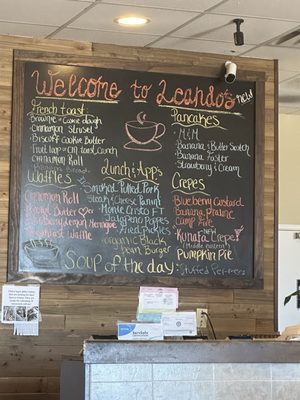 Welcome to Leahdo's
French toast:
Brownie Cookie dough
Cinnamon Strusel
Biscoff Cookie Butter
Fruit loop or Cin.toast Crunch
Cinnamon Roll
Waffles
Cinnamon Roll
Cookie Butter
Blueberry Lemon Meringue
Breakfast Waffle
Lunch & Apps
Smoked Pulled Pork
Steak & Cheese Panini
Monte Cristo FT
Jalapeno Pepes
Fried Pickles
Organic Black
Bean Burger
Pancakes
M&M
Banana & Butter Scotch
Banana
Strawberry & Cream
Crepes
Blueberry Custard
Banana Praline
Camp Fire
NEW
Kunafa Crepe
(Middle eastern)
Pumpkin Pie
Soup of the day:
Stuffed Peppers